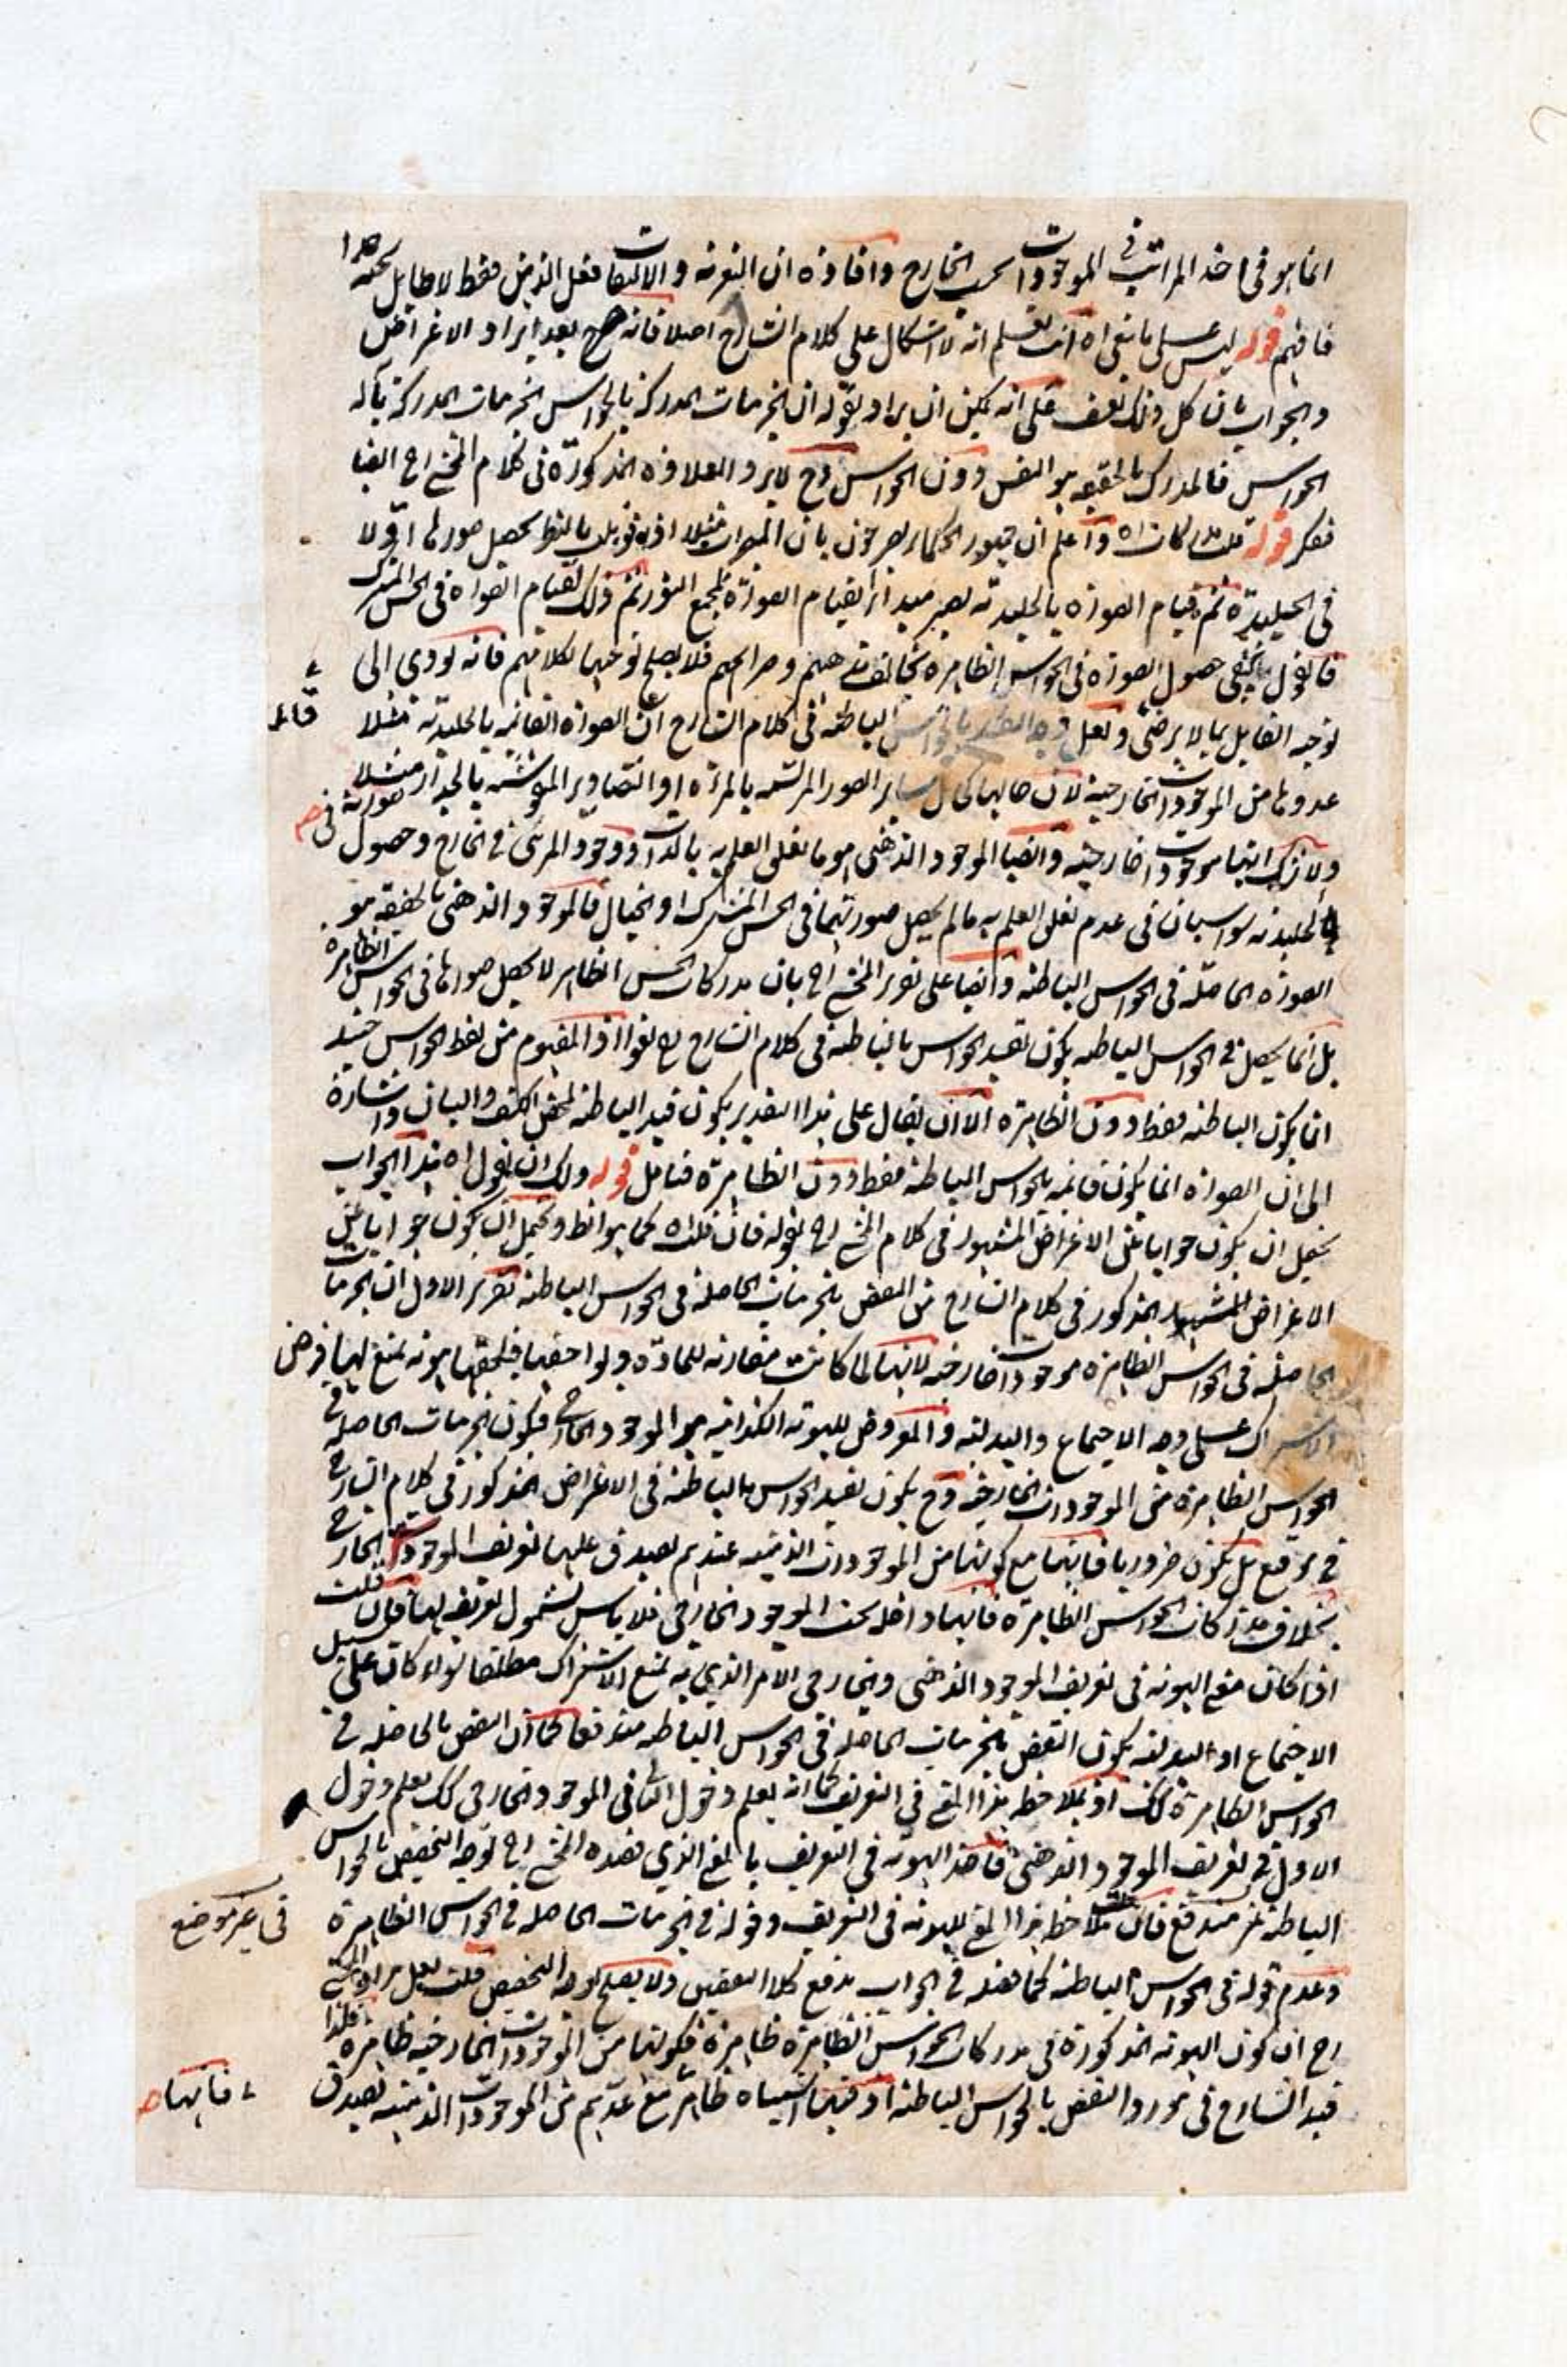 انما هو فى اخذ المراتب فى الموجودات بحسب الخارج وافادة ان التعرية و الالتفات فعل الذهن فقط لا طايل تحته هذا
فافهم قوله ليس على ما ينبغى اه انت تعلم انه لا اشكال على كلام الشارح اصلا فانه صرح بعد ايراد الاعتراض
والجواب بان كل ذلك تعسف على انه يمكن ان يراد بقوله ان الجزئيات المدركة بالحواس الجزئيات المدركة بآلة
الحواس فالمدرك بالحقيقة هو النفس دون الحواس وح لا يرد العلاوة المذكورة فى كلام المحشى رح ايضا
فتفكر قوله مدركات اه واعلم ان جمهور الحكماء يصرحون بان المبصرات مثلا اذا قوبلت بالنظر يحصل صورها اولا
فى الجليدية ثم قيام الصورة بالجليدية يصير مبدأ لقيام الصورة بمجمع النور ثم ذلك لقيام الصورة فى الحس المشترك
فالقول بنفى حصول الصورة فى الحواس الظاهرة مخالف مذهبهم وصرايحهم فلا يصلح توجيها لكلامهم فانه يؤدى الى
توجيه القايل بما لا يرضى ولعل وجه الباطنة فى كلام الشارح ان الصورة القائمة بالجليدية مثلا
قائل
عدوها من الموجودات الخارجية لان حالها كحال ساير الصور المرتسمة بالمرآة او التصاوير المنقوشة بالجدار مثلا
ولا شك انها موجودات خارجية وايضا الموجود الذهنى هو ما تعلق العلم به بالذات ووجود المرئى فى الخارج وحصول صورته فى
الجليدية سواسيان فى عدم تعلق العلم به ما لم يحصل صورتهما فى الحس المشترك او الخيال فالموجود الذهنى بالحقيقة هو
الصورة الحاصلة فى الحواس الباطنة وايضا على تقرير المحشى رح بان مدركات الحس الظاهر لا يحصل صورها فى الحواس الظاهرة
بل انما يحصل فى الحواس الباطنة يكون تقييد الحواس بالباطنة فى كلام الشارح رح لغوا اذ المفهوم من لفظ الحواس حينئذ
انما يكون الباطنة فقط دون الظاهرة الا ان يقال على هذا التقدير يكون قيد الباطنة لمحض الكشف والبيان واشارة
الى ان الصورة انما يكون قائمة بالحواس الباطنة فقط دون الظاهرة فتامل قوله ولك ان تقول اه هذا الجواب
يحتمل ان يكون جوابا عن الاعتراض المشهور فى كلام المحشى رح بقوله فان قلت اه كما هو الظ ويحتمل ان يكون جوابا عن
الاعتراض المذكور فى كلام الشارح من النقض بالجزئيات الحاصلة فى الحواس الباطنة تقرير الاول ان الجزئيات
الحاصلة فى الحواس الظاهرة موجودات خارجية لانها لما كانت مقارنة للمادة ولواحقها فيلحقها هوية يمنع لها فرض
الاشتراك على وجه الاجتماع والبدلية والمعروض للهوية الكذائية هو الموجود الخارجى فيكون الجزئيات الحاصلة فى
الحواس الظاهرة من الموجودات الخارجية وح يكون تقييد الحواس بالباطنة فى الاعتراض المذكور فى كلام الشارح
فى موقع بل يكون ضروريا فانها مع كونها من الموجودات الذهنية عندهم يصدق عليها تعريف الموجود الخارجى
بخلاف مدركات الحواس الظاهرة فانها داخلة تحت الموجود الخارجى فلا باس بشمول تعريفه لها فان قلت
اذا كان معنى الهوية فى تعريف الموجود الذهنى والخارجى الامر الذى به يمنع الاشتراك مطلقا سواء كان على سبيل
الاجتماع او البدلية يكون النقض بالجزئيات الحاصلة فى الحواس الباطنة مندفعا كما ان النقض بالحاصلة فى
الحواس الظاهرة كك اذ بملاحظة هذا المعنى فى التعريف كما انه يعلم دخول الثانى فى الموجود الخارجى كك يعلم دخول
الاول فى تعريف الموجود الذهنى فاخذ الهوية فى التعريف بالمعنى الذى قصده المحشى رح توجه التخصيص بالحواس
الباطنة غير مندفع فان بملاحظة هذا المعنى للهوية فى التعريف ودخوله فى الجزئيات الحاصلة فى الحواس الظاهرة
فى غير موضع
وعدم دخوله فى الحواس الباطنة كما فصله فى الجواب يدفع كلا النقضين ولا يصلح لوجه التخصيص قلت لعل مراد المحشى
رح ان كون الهوية المذكورة فى مدركات الحواس الظاهرة ظاهرة فكونها من الموجودات الخارجية ظاهرة فلذا
قيد الشارح فى مورد النقض بالحواس الباطنة اذ فيها اشتباه ظاهر مع عدهم من الموجودات الذهنية يصدق
فانها صح